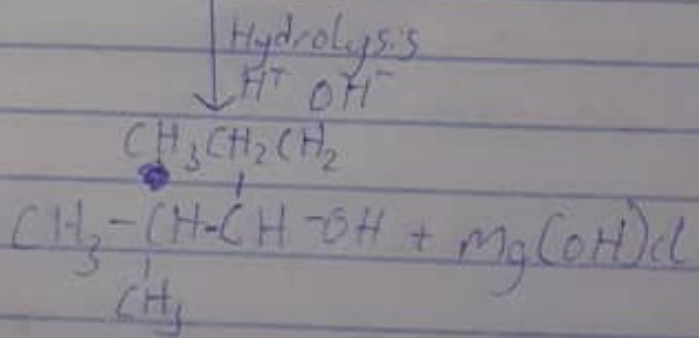 Hydrolysis
H⁺ OH⁻
CH₃CH₂CH₂
CH₃-CH-CH-OH + Mg(OH)Cl
CH₃